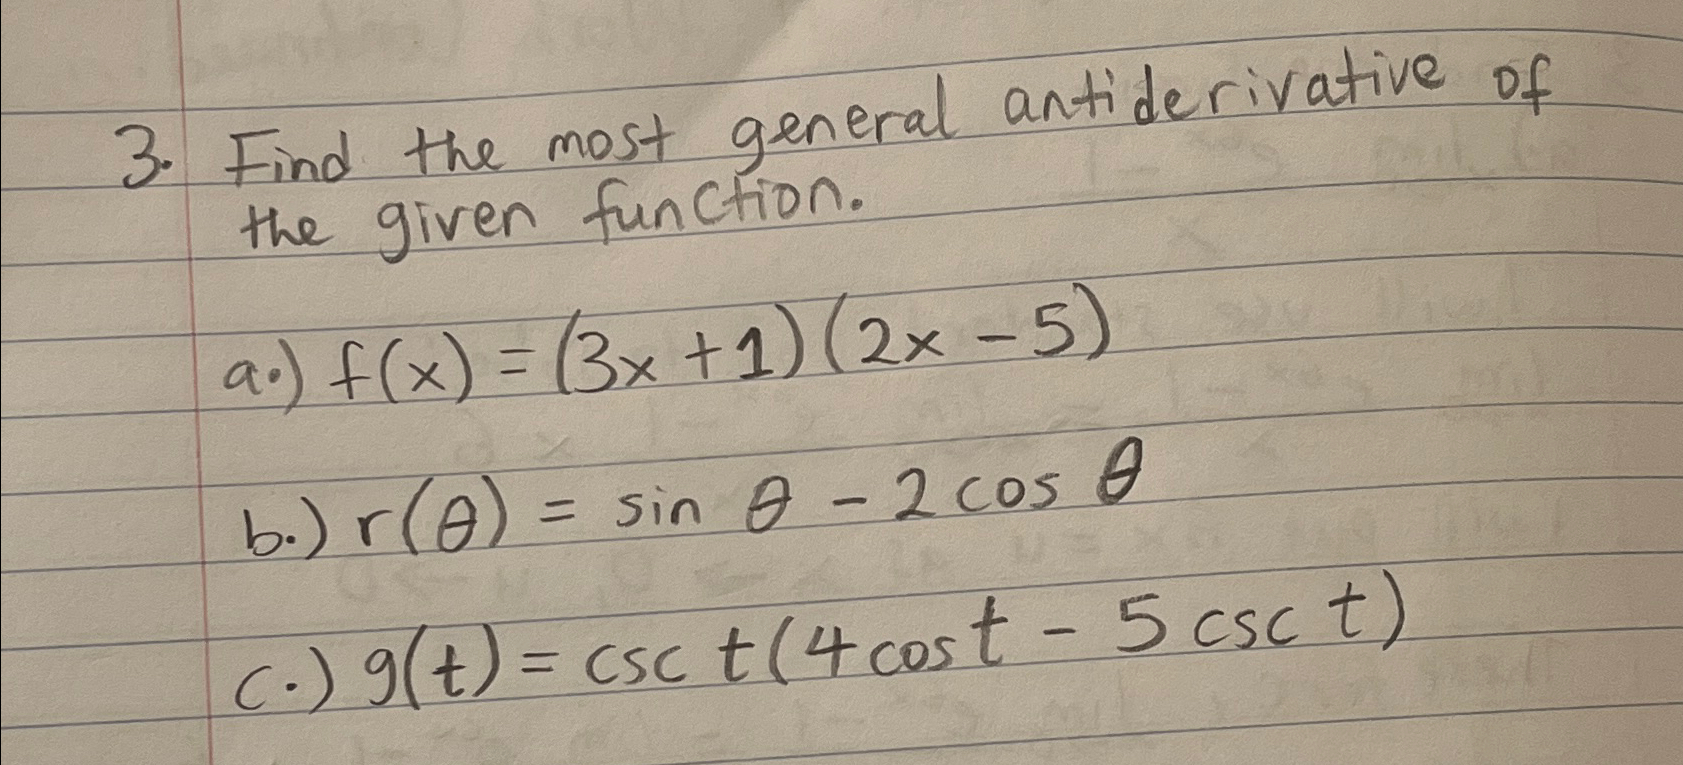 3. Find the most general antiderivative of
the given function.
a.) f(x) = (3x + 1)(2x - 5)
b.) r(θ) = sin θ - 2 cos θ
c.) g(t) = csc t(4 cos t - 5 csc t)